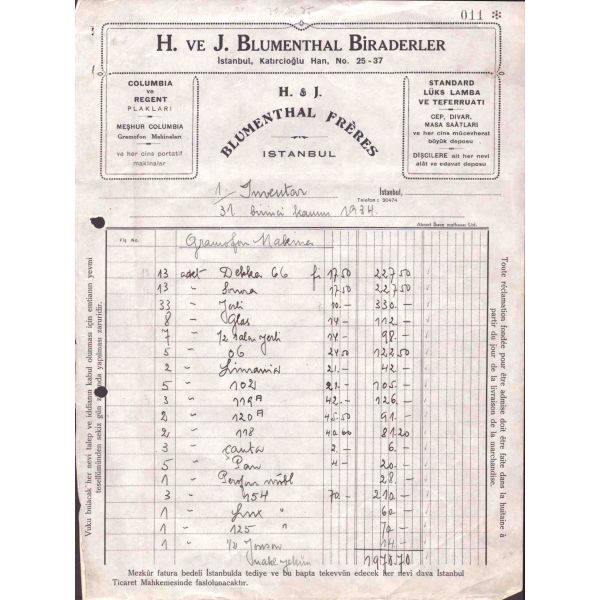 011
H. VE J. BLUMENTHAL BİRADERLER
İstanbul, Katırcıoğlu Han, No. 25 - 37
COLUMBIA
ve
REGENT
PLAKLARI
MEŞHUR COLUMBIA
Gramofon Makinaları
ve her cins portatif
makinalar
H. & J.
BLUMENTHAL FRÈRES
ISTANBUL
STANDARD
LÜKS LAMBA
VE TEFERRUATI
CEP, DIVAR,
MASA SAATLARI
ve her cins mücevherat
büyük deposu
DİŞCİLERE ait her nevi
alât ve edavat deposu
1/ Inventar
İstanbul,
Telefon: 20474
31. birinci kanun 1934.
Fiş No.
Gramofon Makina
13 adet Dekka 66 fi 17.50 227.50
13 " 17.50 227.50
33 " Yerli 10.- 330.-
8 " Glas 14.- 112.-
7 " Yerli 14.- 98.-
5 " 06 24.50 122.50
2 " 21.- 42.-
5 " 102 21.- 105.-
3 " 119A 42.- 126.-
2 " 120A 45.50 91.-
2 " 118 40.60 81.20
3 " Çanta 2.- 6.-
5 " Pan 4.- 20.-
1 " 28.-
3 " 154 70.- 210.-
1 " Lux " 60.-
1 " 125 " 70.-
1 " 14.-
1970.70
Vuku bulacak her nevi talep ve iddianın kabul olunması için emtianın yevmi
tesellümünden sekiz gün zarfında yapılması zaruridir.
Toute réclamation fondée pour être admise doit être faite dans la huitaine à
partir du jour de la livraison de la marchandise.
Mezkûr fatura bedeli İstanbulda tediye ve bu bapta tekevvün edecek her nevi dava İstanbul
Ticaret Mahkemesinde faslolunacaktır.